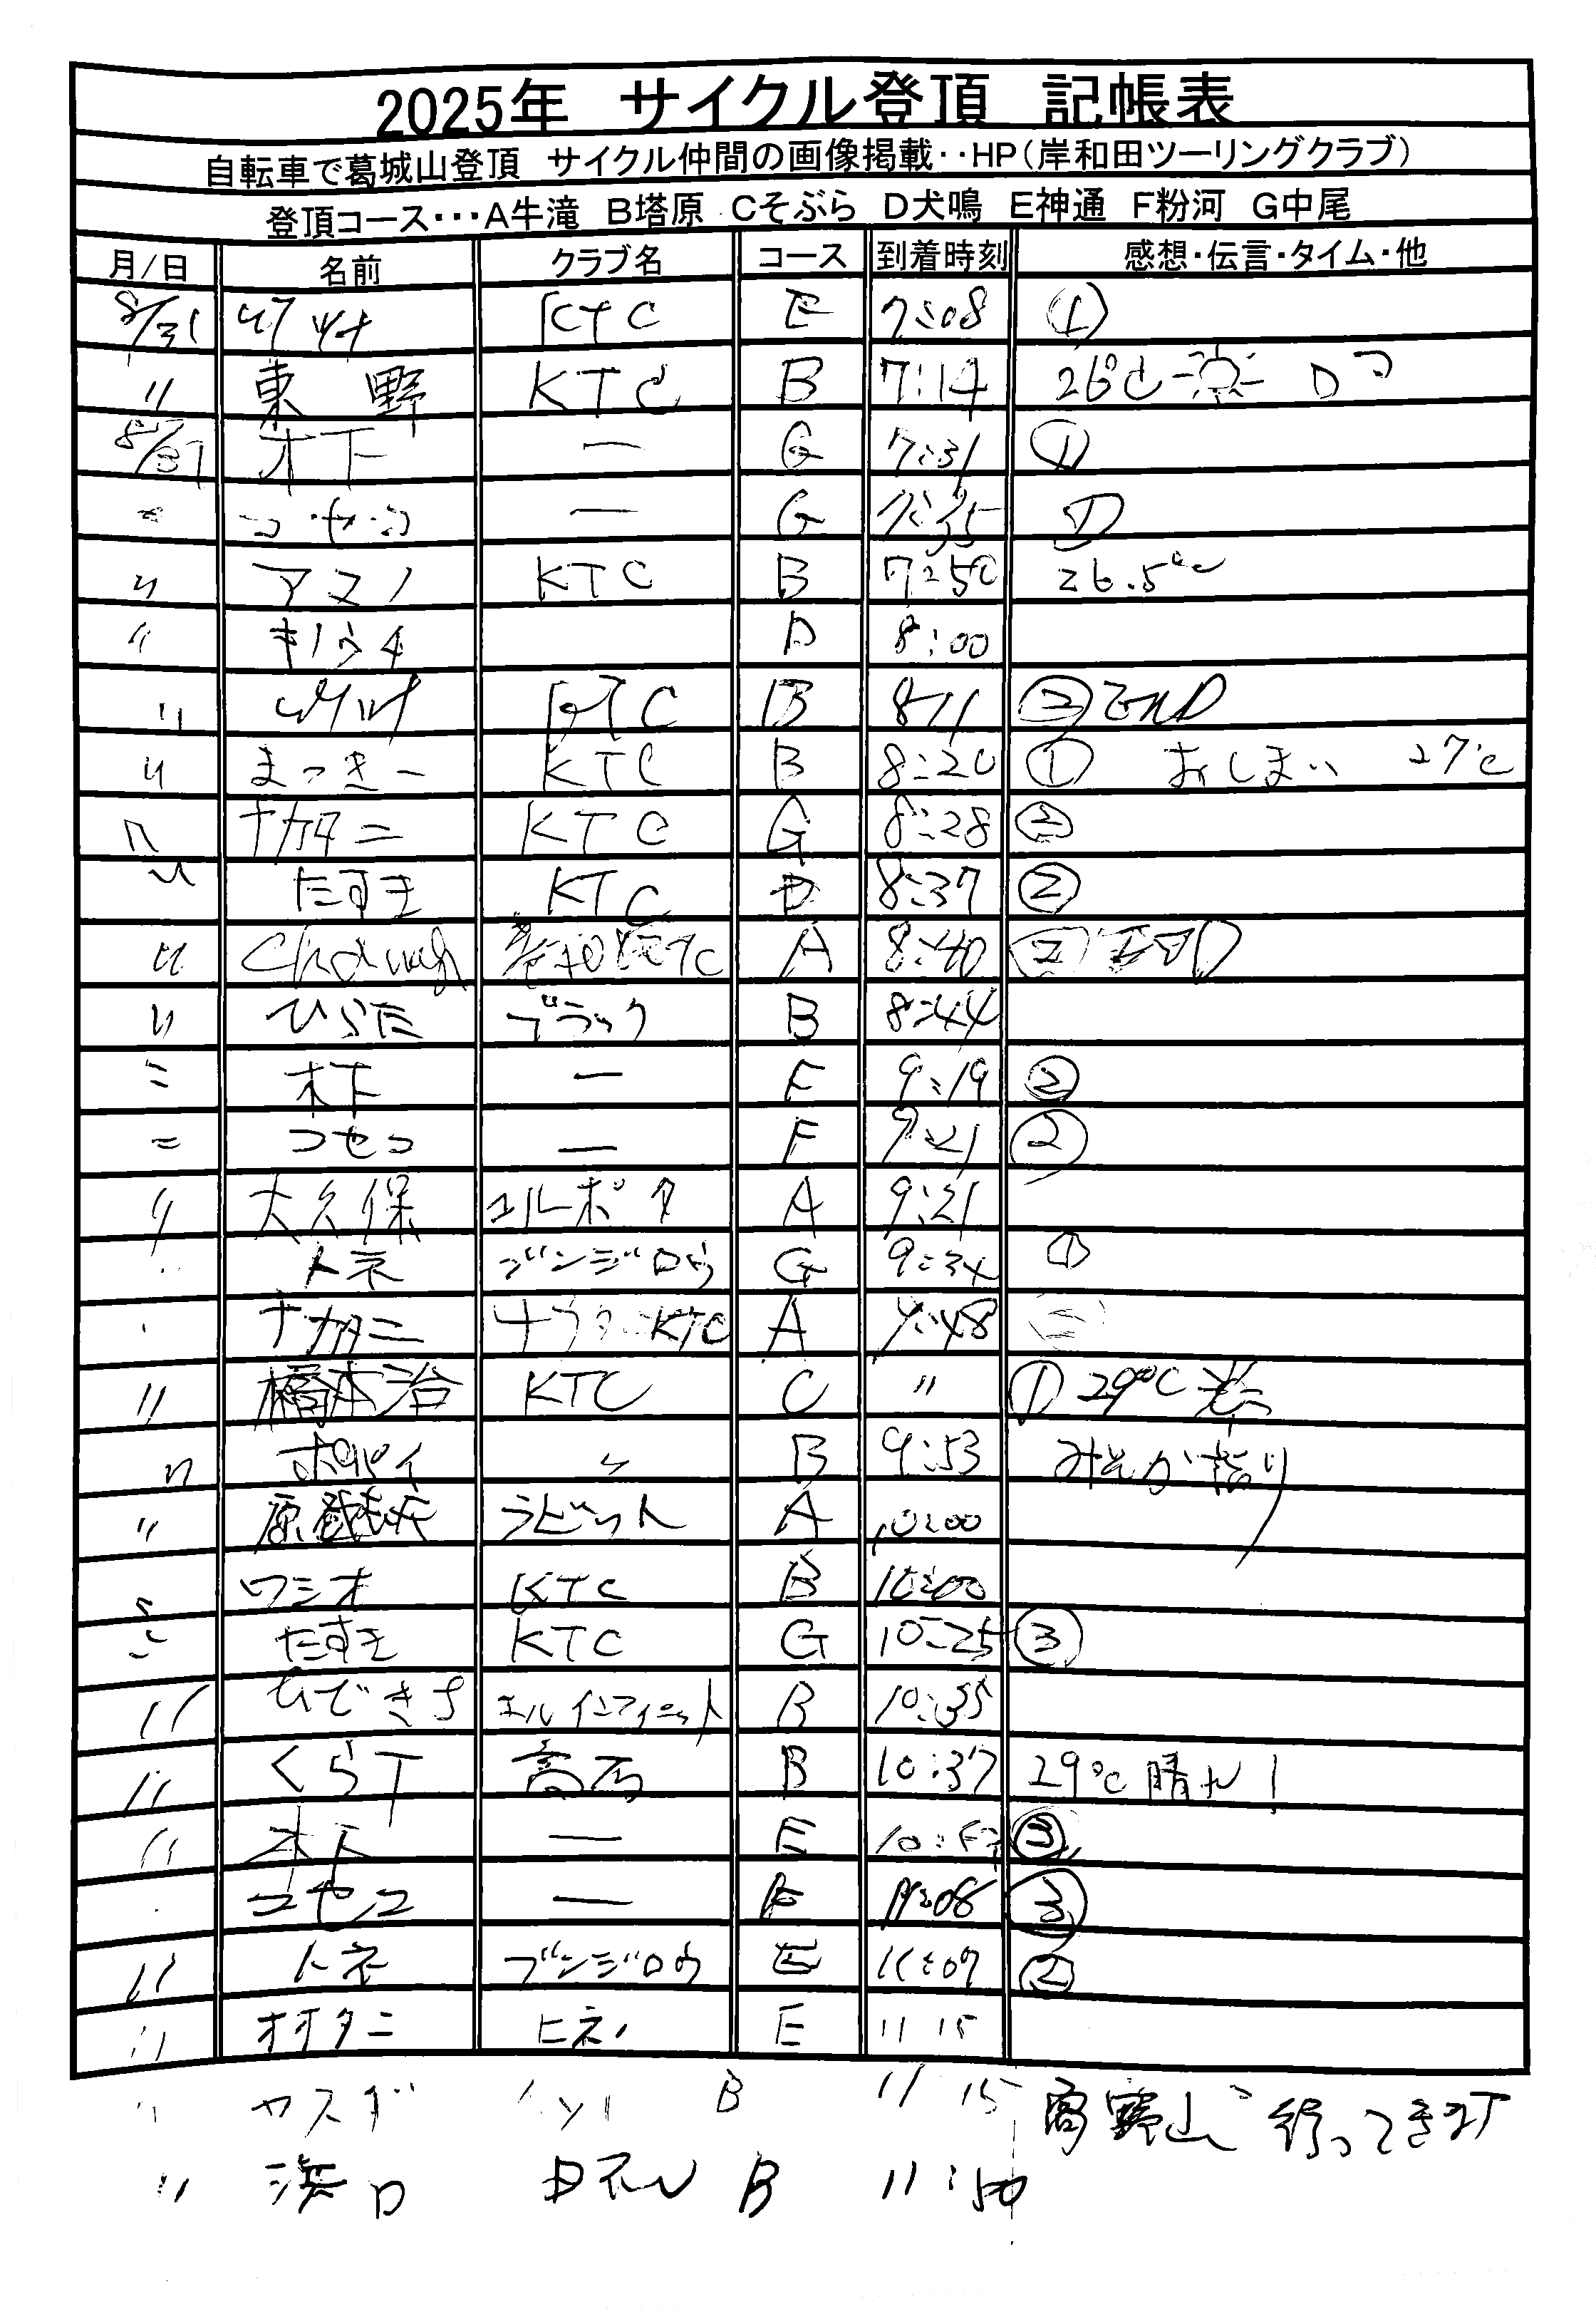 2025年 サイクル登頂 記帳表
自転車で葛城山登頂 サイクル仲間の画像掲載‥HP(岸和田ツーリングクラブ)
登頂コース･･･A牛滝 B塔原 Cそぶら D犬鳴 E神通 F粉河 G中尾
月/日 名前 クラブ名 コース 到着時刻 感想・伝言・タイム・他
8/31 KTC E 7:08 ①
〃 東野 KTC B 7:14 26℃
8/31 木下 ー G 7:31 ①
コセコ ー G 7:35 ①
〃 アマノ KTC B 7:50 26.5℃
〃 キノウチ D 8:00
〃 KTC B 8:11 ② END
〃 まっきー KTC B 8:20 ① おしまい 27℃
〃 ナカタニ KTC G 8:28 ②
〃 たすき KTC D 8:37 ②
〃 岸和田TC A 8:40 ② END
〃 ひらた ブラック B 8:44
〃 木下 ー F 9:19 ②
〃 コセコ ー F 9:21 ②
〃 大久保 エルポタ A 9:21
トネ ブンジロウ G 9:34 ①
ナカタニ KTC A 9:48
〃 橋本治 KTC C 〃 ① 29℃
〃 ポパイ 〃 B 9:53 みそか詣り
〃 原 ラビット A 10:00
〃 ワシオ KTC B 10:00
〃 たすき KTC G 10:25 ③
〃 ひできち エルインフィニット B 10:35
〃 くらT 高石 B 10:37 29℃ 晴れ!
〃 木下 ー E ③
コセコ ー F 11:08 ③
〃 トネ ブンジロウ E 11:09 ②
〃 オオタニ ヒネノ E 11 15
〃 ヤスダ B 11 15 行ってきます
〃 浜口 B 11:50